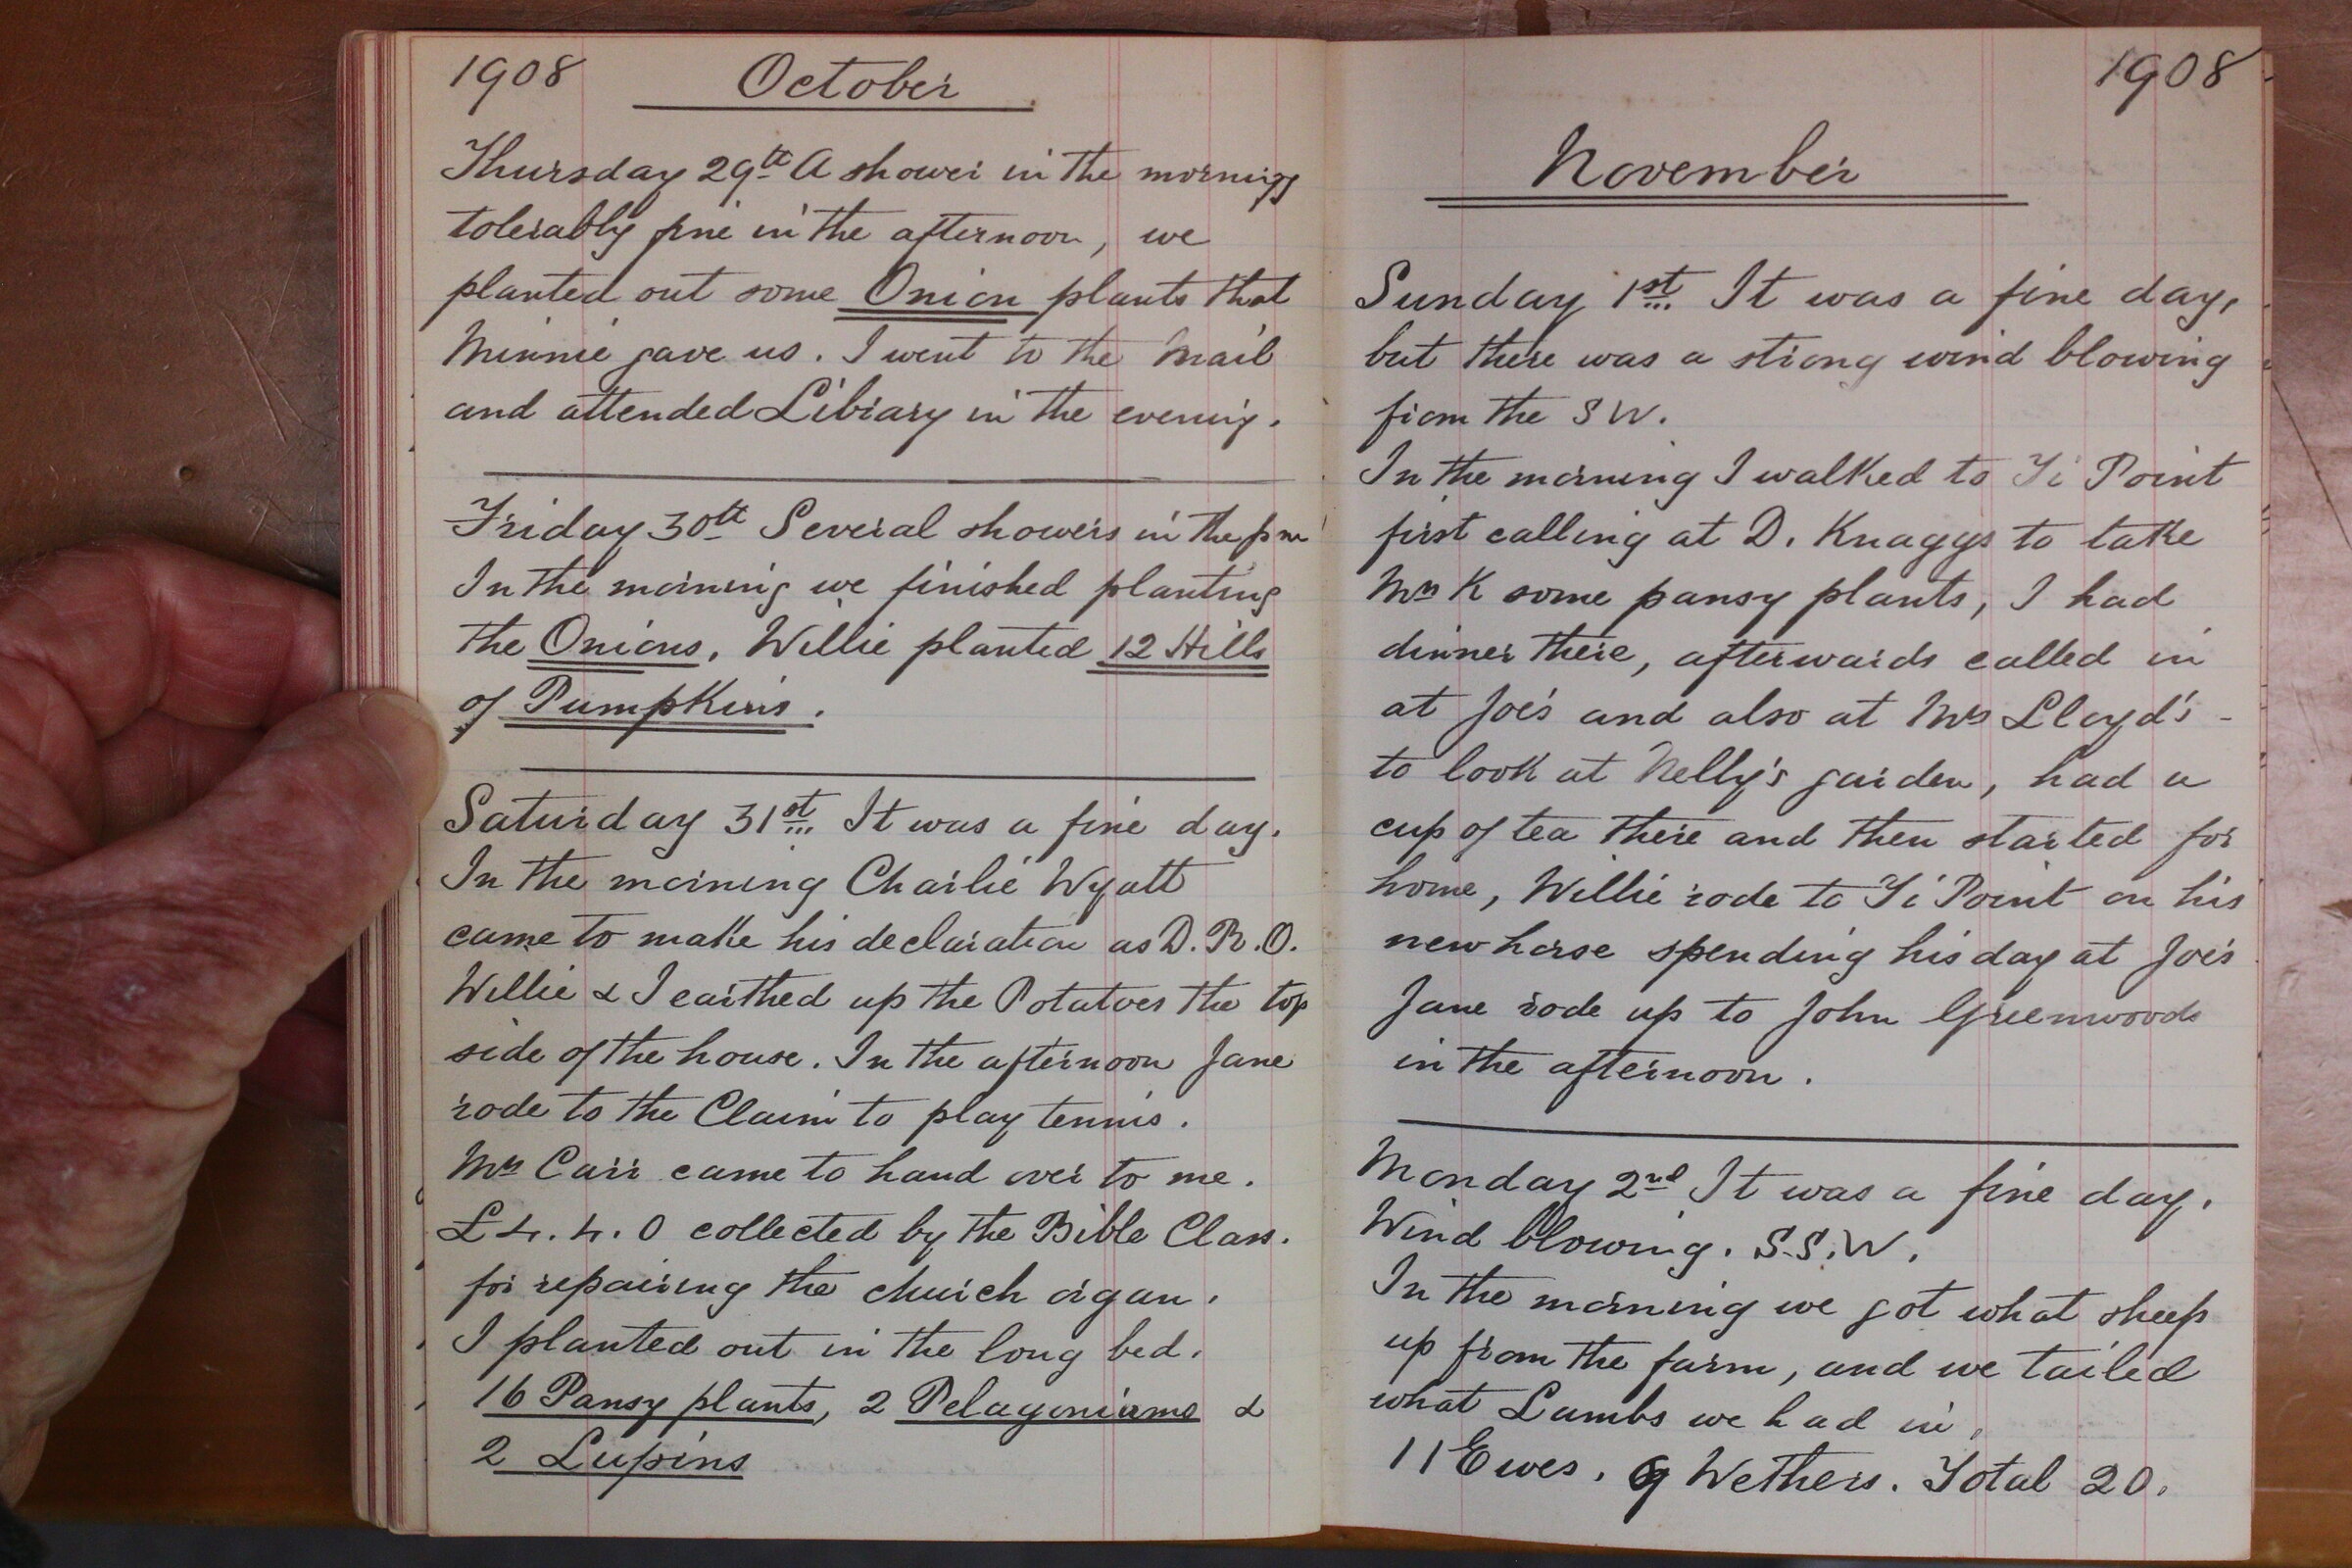 1908 October
Thursday 29th A shower in the morning
tolerably fine in the afternoon, we
planted out some Onion plants that
Minnie gave us. I went to the Mail
and attended Library in the evening.
Friday 30th Several showers in the pm
In the morning we finished planting
the Onions, Willie planted 12 Hills
of Pumpkins.
Saturday 31st It was a fine day.
In the morning Charlie Wyatt
came to make his declaration as D.R.O.
Willie & I earthed up the Potatoes the top
side of the house. In the afternoon Jane
rode to the Claim to play tennis.
Mrs Carr came to hand over to me.
£4.4.0 collected by the Bible Class.
for repairing the church organ.
I planted out in the long bed.
16 Pansy plants, 2 Pelagoniums &
2 Lupins
1908
November
Sunday 1st It was a fine day,
but there was a strong wind blowing
from the SW.
In the morning I walked to Ti Point
first calling at D. Knaggs to take
Mrs K some pansy plants, I had
dinner there, afterwards called in
at Joe's and also at Mrs Lloyd's -
to look at Nelly's garden, had a
cup of tea there and then started for
home, Willie rode to Ti Point on his
new horse spending his day at Joe's
Jane rode up to John Greenwoods
in the afternoon.
Monday 2nd It was a fine day.
Wind blowing. S.S.W.
In the morning we got what sheep
up from the farm, and we tailed
what Lambs we had in,
11 Ewes. 9 Wethers. Total 20.